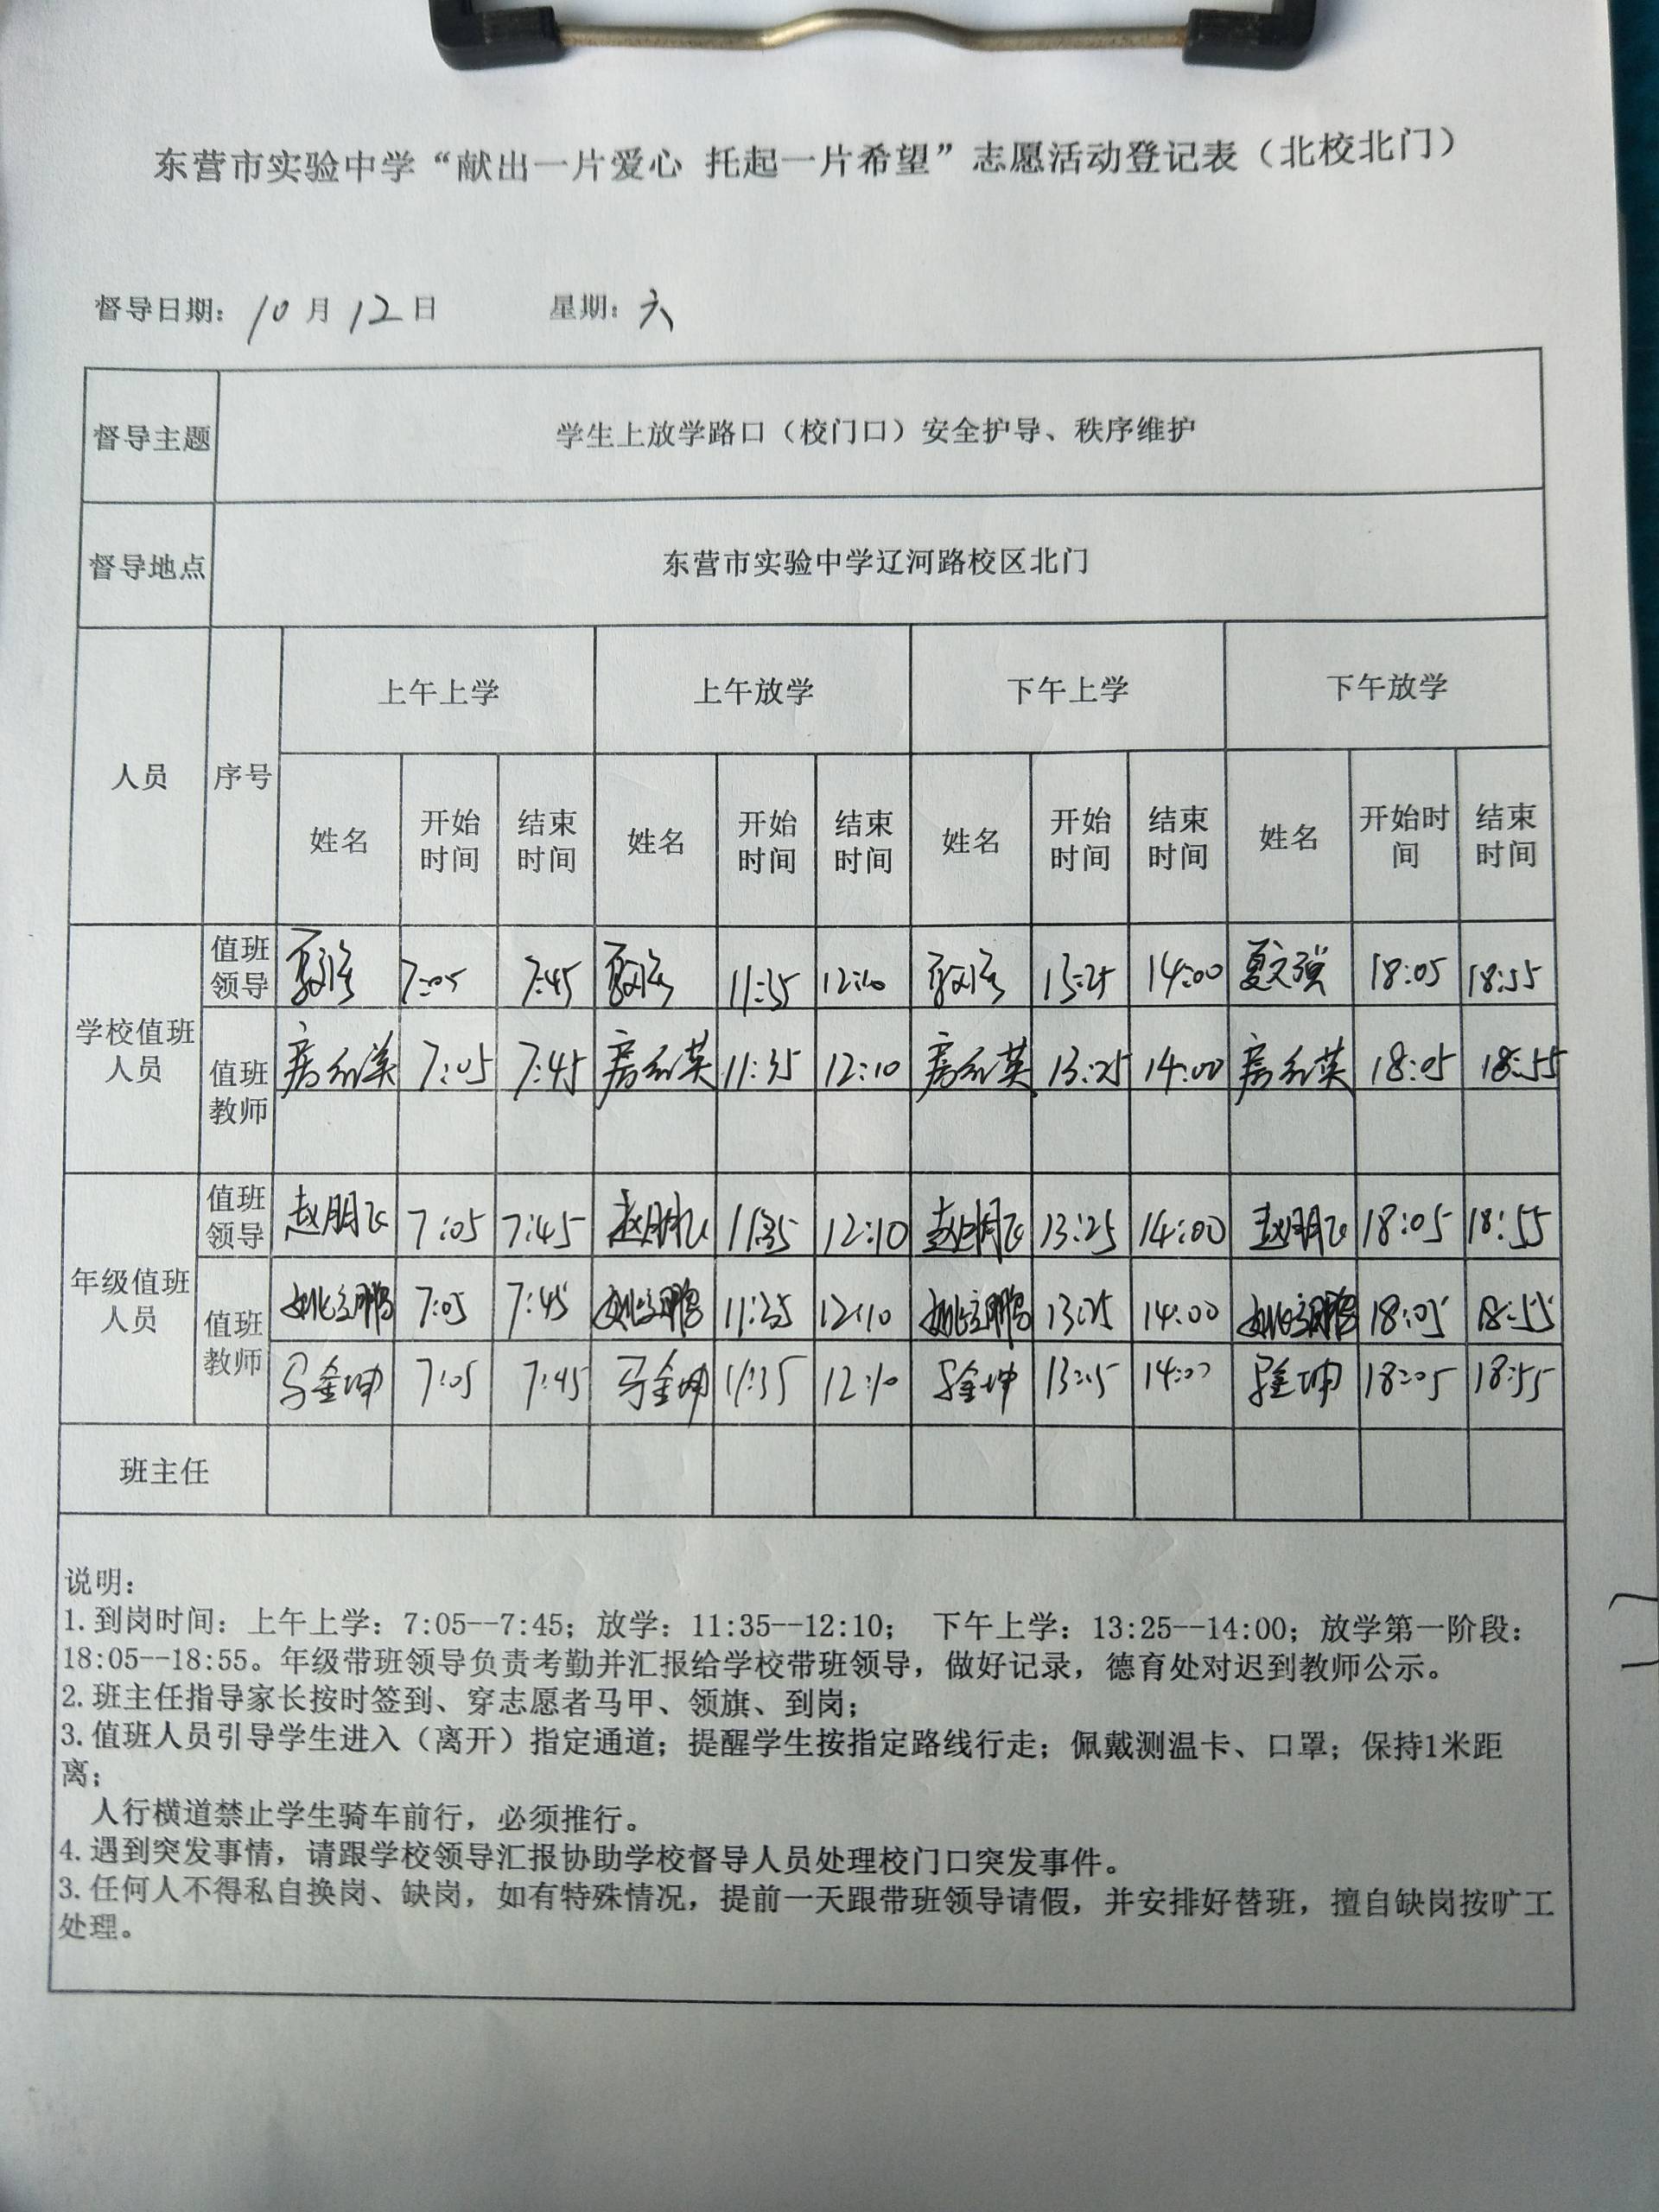 东营市实验中学“献出一片爱心 托起一片希望”志愿活动登记表（北校北门）
督导日期：10月12日 星期：六
督导主题 学生上放学路口（校门口）安全护导、秩序维护
督导地点 东营市实验中学辽河路校区北门
人员 序号 上午上学 上午放学 下午上学 下午放学
姓名 开始时间 结束时间 姓名 开始时间 结束时间 姓名 开始时间 结束时间 姓名 开始时间 结束时间
学校值班人员 值班领导 夏文强 7:05 7:45 夏文强 11:35 12:10 夏文强 13:25 14:00 夏文强 18:05 18:55
值班教师 7:05 7:45 11:35 12:10 13:25 14:00 18:05 18:55
年级值班人员 值班领导 赵朋飞 7:05 7:45 赵朋飞 11:35 12:10 赵朋飞 13:25 14:00 赵朋飞 18:05 18:55
值班教师 姚立鹏 7:05 7:45 姚立鹏 11:35 12:10 姚立鹏 13:25 14:00 姚立鹏 18:05 18:55
马金坤 7:05 7:45 马金坤 11:35 12:10 马金坤 14:00 马金坤 18:05 18:55
班主任
说明：
1.到岗时间：上午上学：7:05--7:45；放学：11:35--12:10； 下午上学：13:25--14:00；放学第一阶段：
18:05--18:55。年级带班领导负责考勤并汇报给学校带班领导，做好记录，德育处对迟到教师公示。
2.班主任指导家长按时签到、穿志愿者马甲、领旗、到岗；
3.值班人员引导学生进入（离开）指定通道；提醒学生按指定路线行走；佩戴测温卡、口罩；保持1米距
离；
人行横道禁止学生骑车前行，必须推行。
4.遇到突发事情，请跟学校领导汇报协助学校督导人员处理校门口突发事件。
3.任何人不得私自换岗、缺岗，如有特殊情况，提前一天跟带班领导请假，并安排好替班，擅自缺岗按旷工
处理。